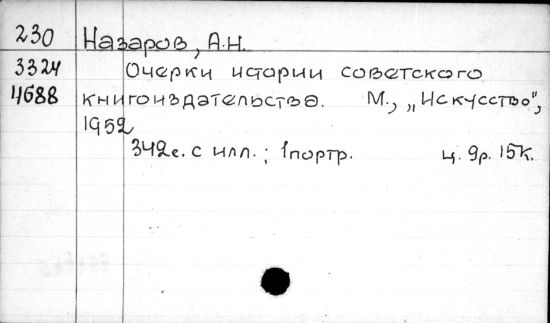 230 Назаров, А.Н.
3324 Очерки истории советского
4688 книгоиздательства. М., „Искусство",
1952
342с. с илл.; 1портр. ц. 9р. 15к.